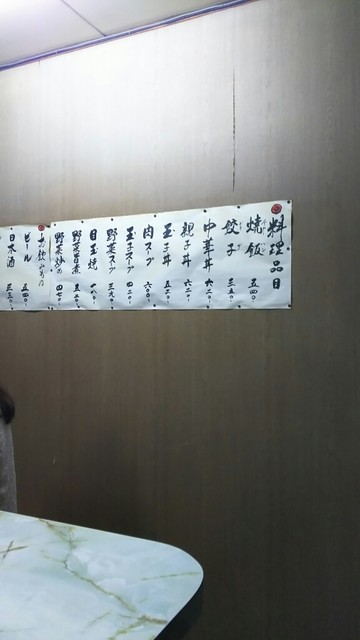 料理品目
焼飯 五四〇
餃子 三五〇
中華丼 六二〇
親子丼 六二〇
玉子丼 五二〇
肉スープ 六〇〇
玉子スープ 四二〇
野菜スープ 三九〇
目玉焼 一八〇
野菜旨煮 五二〇
野菜炒め 四七〇
お飲みもの
ビール 五四〇
日本酒 三三〇